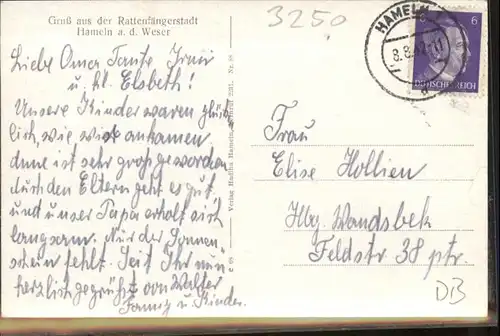 Gruß aus der Rattenfängerstadt
Hameln a. d. Weser
Liebe Oma Tante Irmi
u. kl. Elsbeth!
Unsere Kinder waren glück
lich, wie wir ankamen
ist sehr groß geworden
den Eltern geht es gut
und unser Papa erholt sich
langsam. Nur der Sonnen
schein fehlt. Seid Ihr nun
herzlich gegrüßt von Walter
Fanny u. Kinder.
3250
HAMELN
8.8.
6
DEUTSCHES REICH
Frau
Elise Hollien
Hbg. Wandsbek
Feldstr 38 ptr.
DB